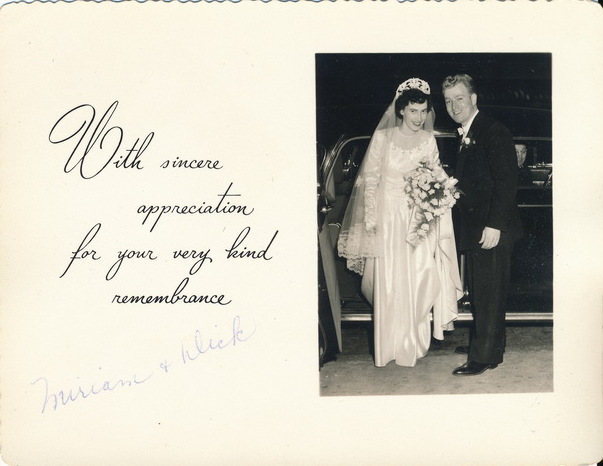 With sincere
appreciation
for your very kind
remembrance
Miriam & Dick